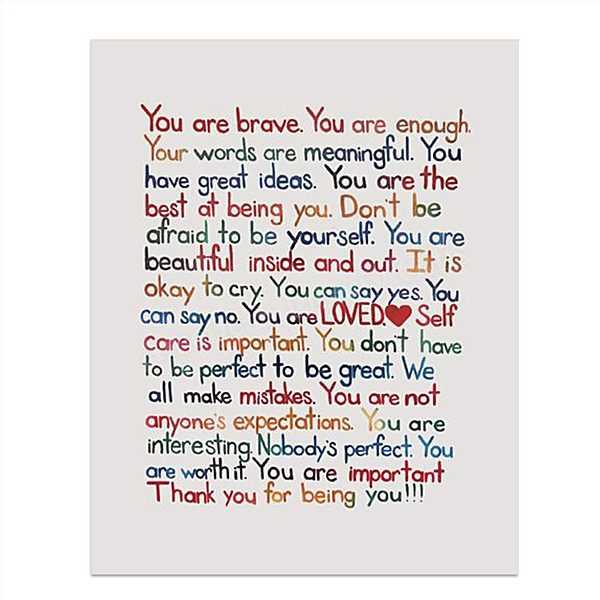 You are brave. You are enough.
Your words are meaningful. You
have great ideas. You are the
best at being you. Don't be
afraid to be yourself. You are
beautiful inside and out. It is
okay to cry. You can say yes. You
can say no. You are LOVED.❤ Self
care is important. You don't have
to be perfect to be great. We
all make mistakes. You are not
anyone's expectations. You are
interesting. Nobody's perfect. You
are worth it. You are important
Thank you for being you!!!